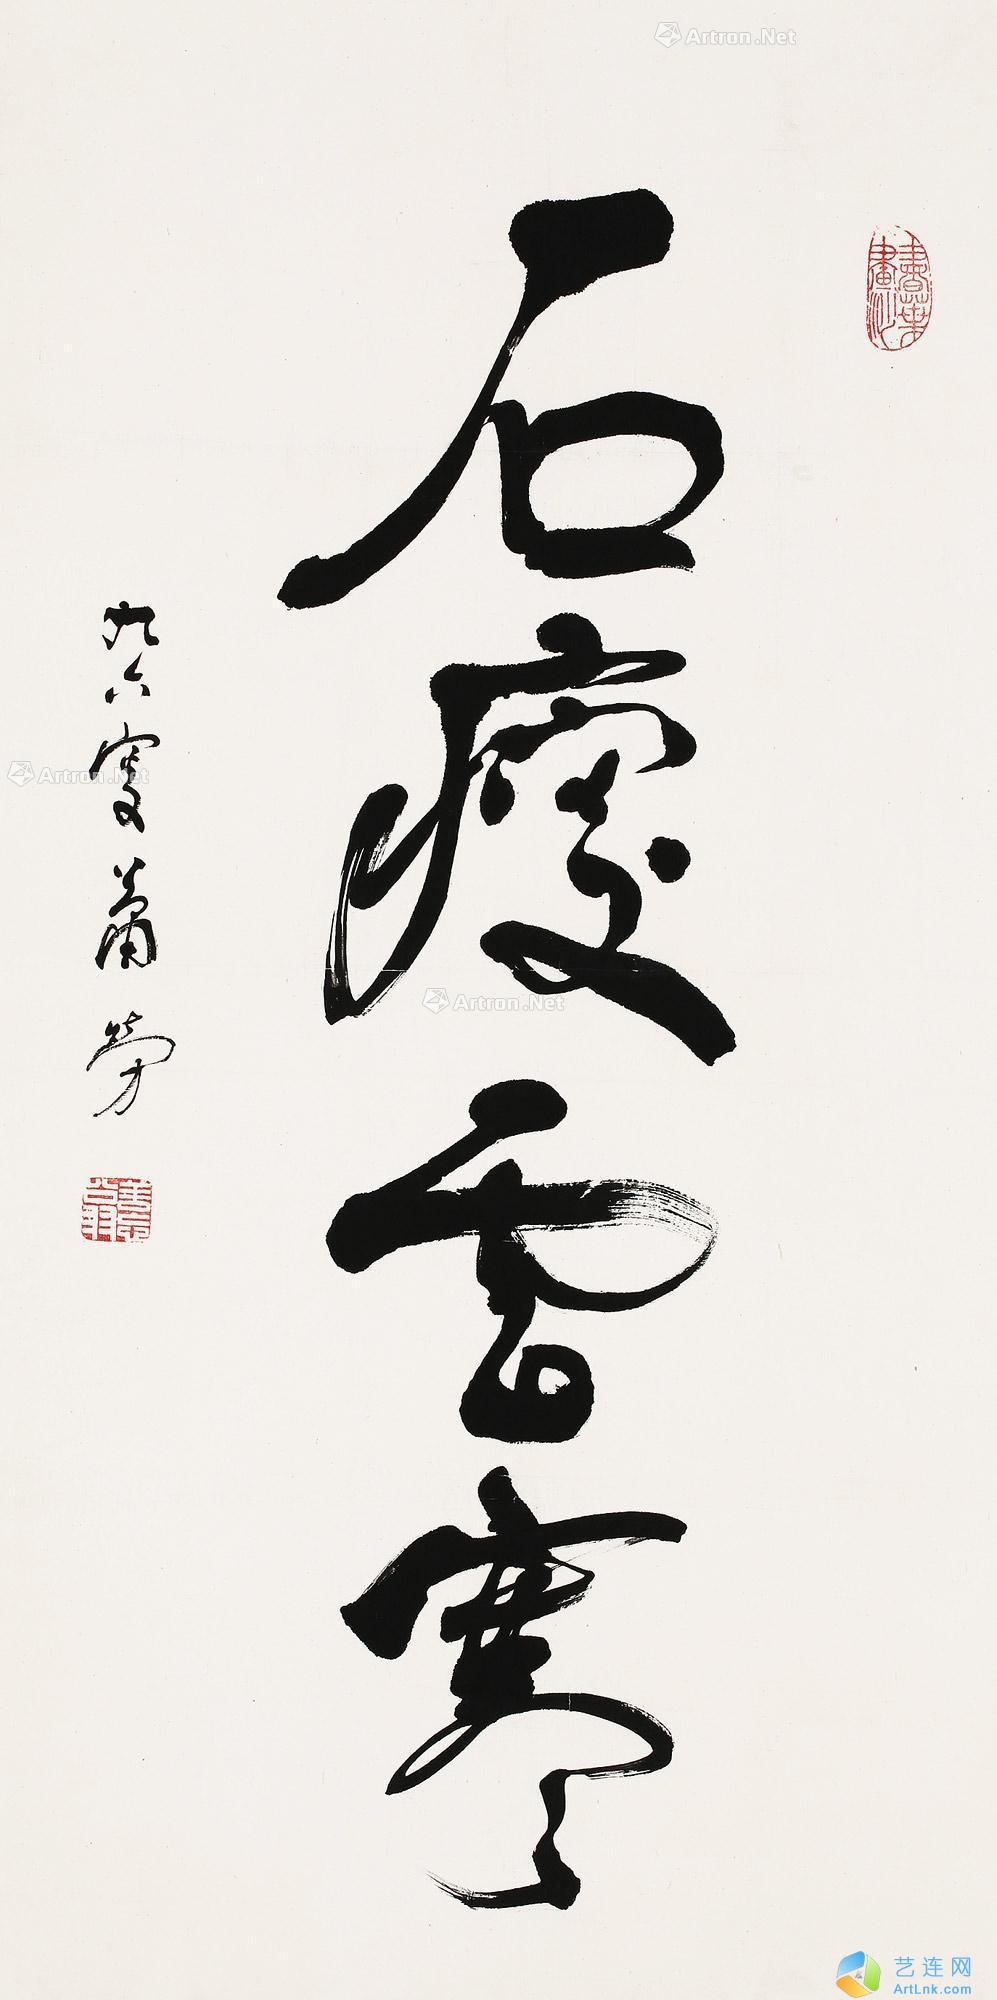 石瘦雲寒
九六叟蕭勞
Artron.Net
Artron.Net
Artron.Net
艺连网
ArtLnk.com